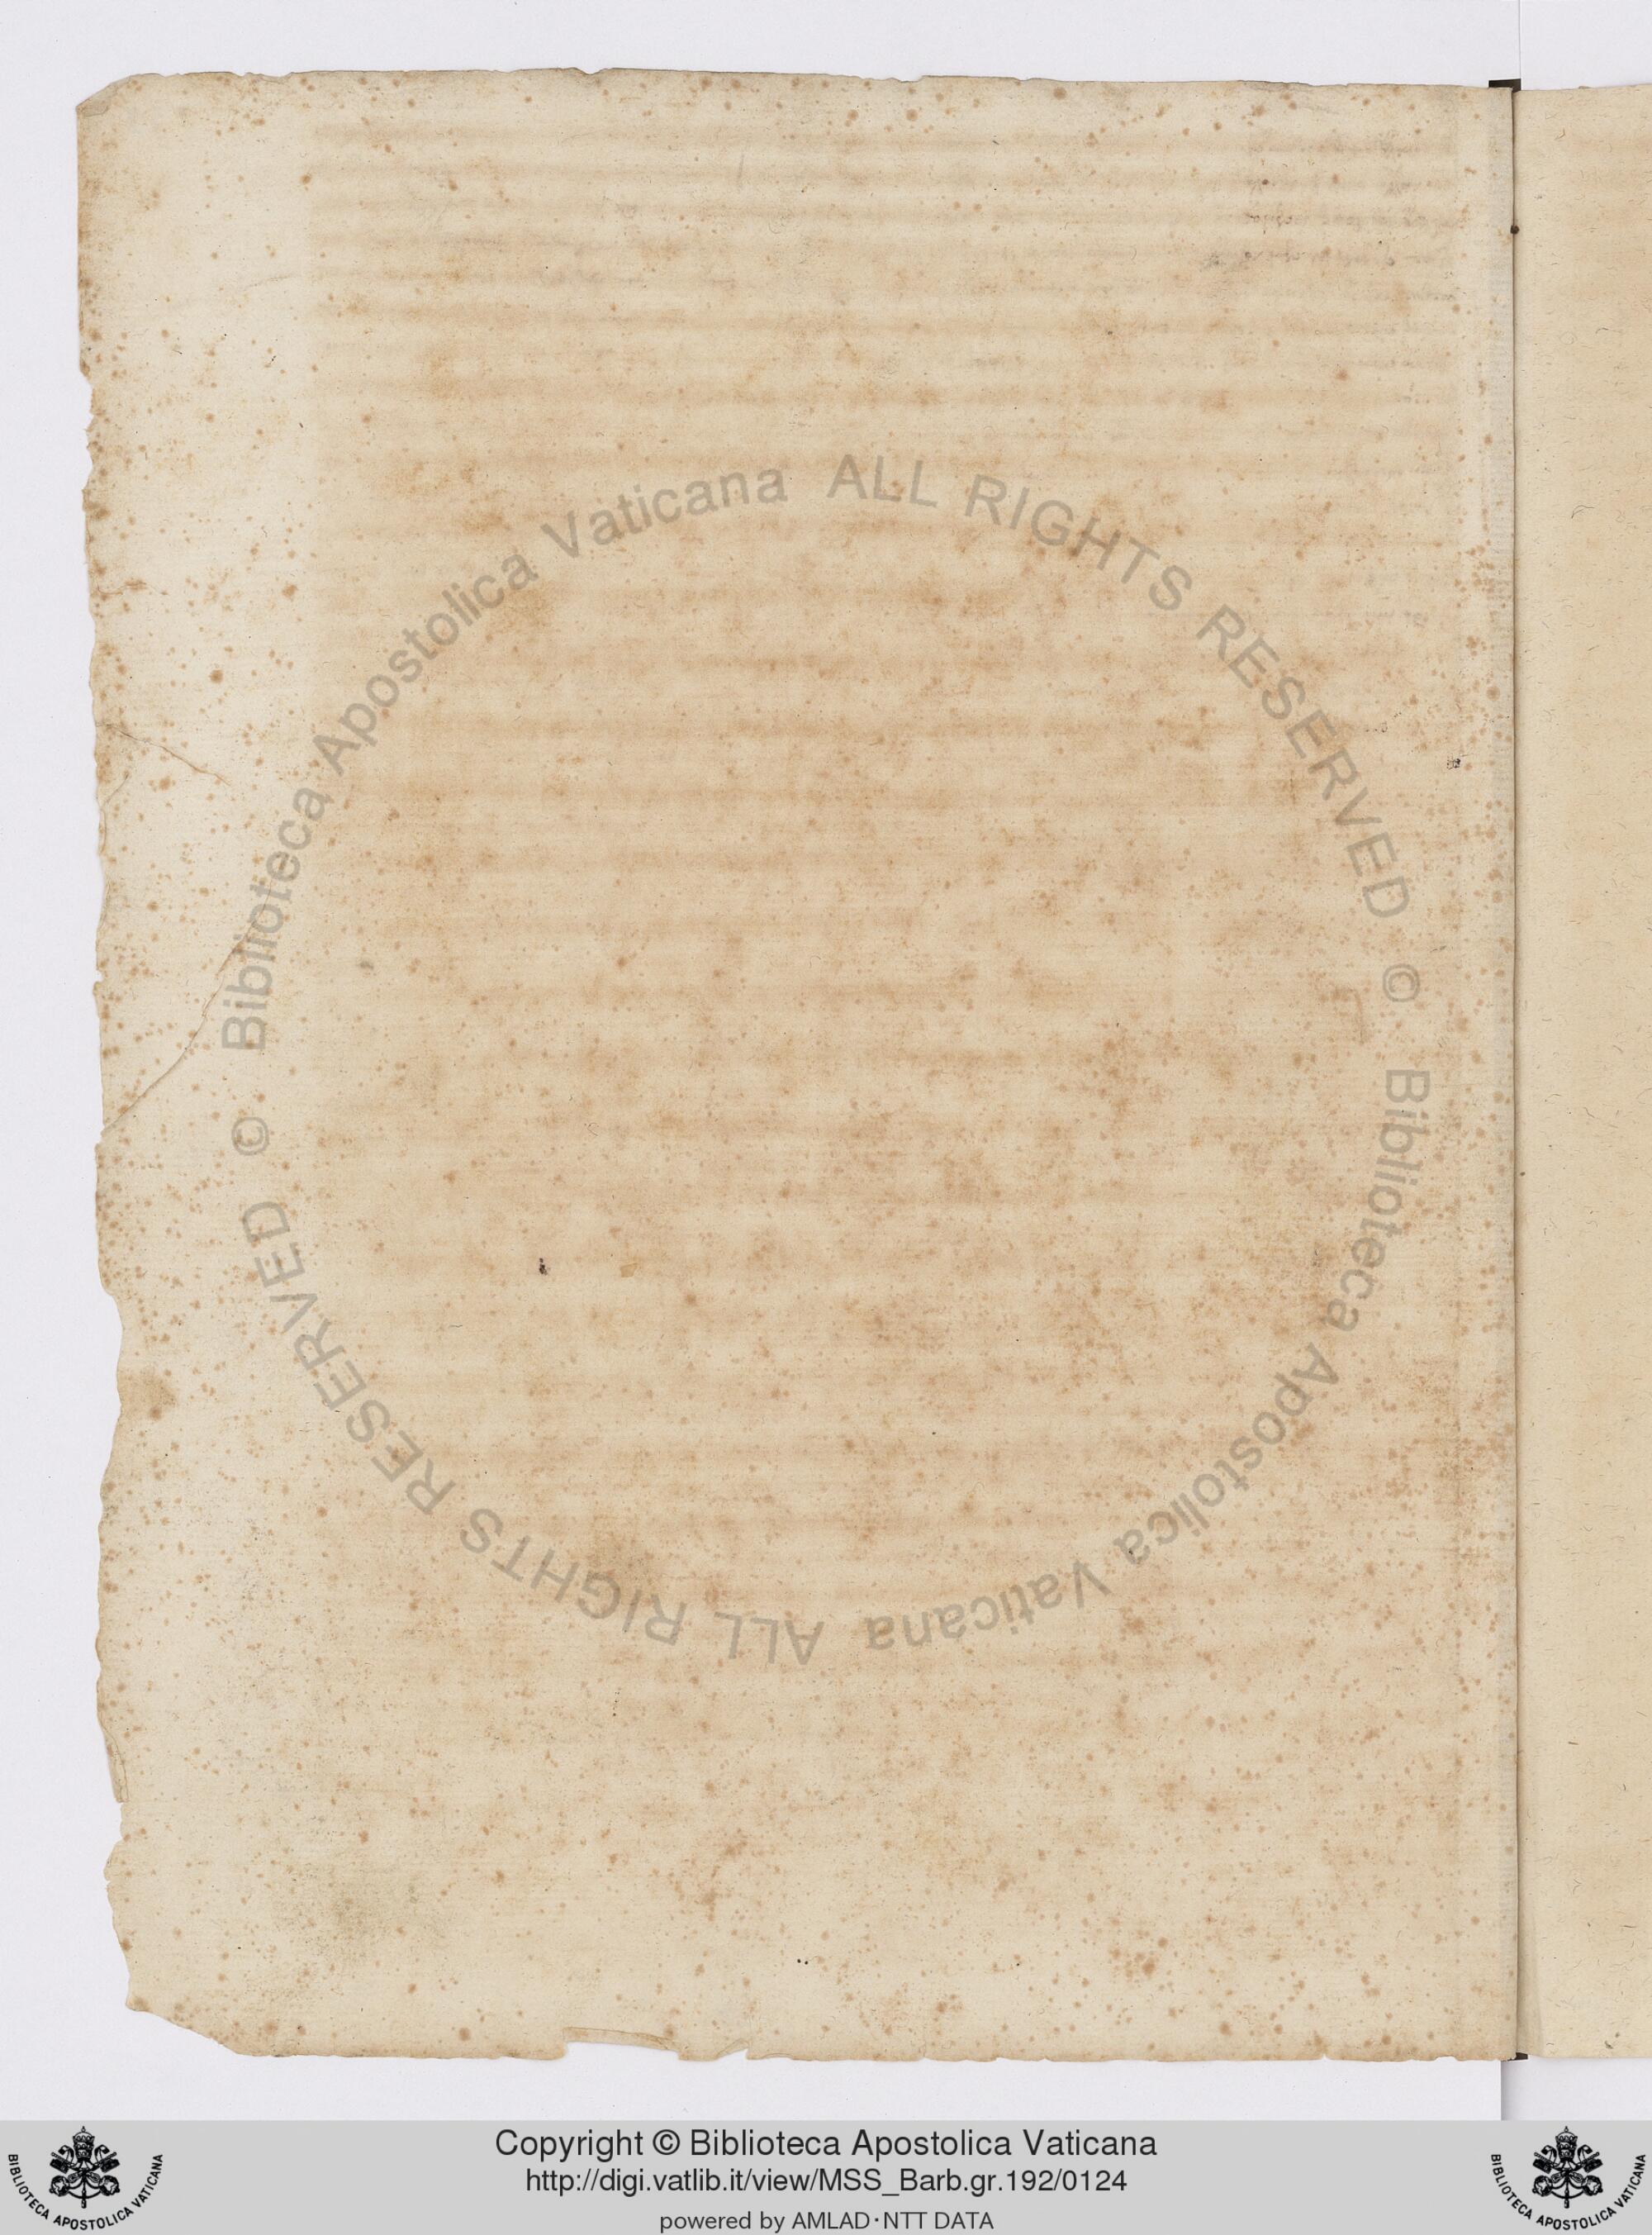 Biblioteca Apostolica Vaticana ALL RIGHTS RESERVED ©
Biblioteca Apostolica Vaticana ALL RIGHTS RESERVED ©
Copyright © Biblioteca Apostolica Vaticana
http://digi.vatlib.it/view/MSS_Barb.gr.192/0124
powered by AMLAD·NTT DATA
BIBLIOTECA APOSTOLICA VATICANA
BIBLIOTECA APOSTOLICA VATICANA